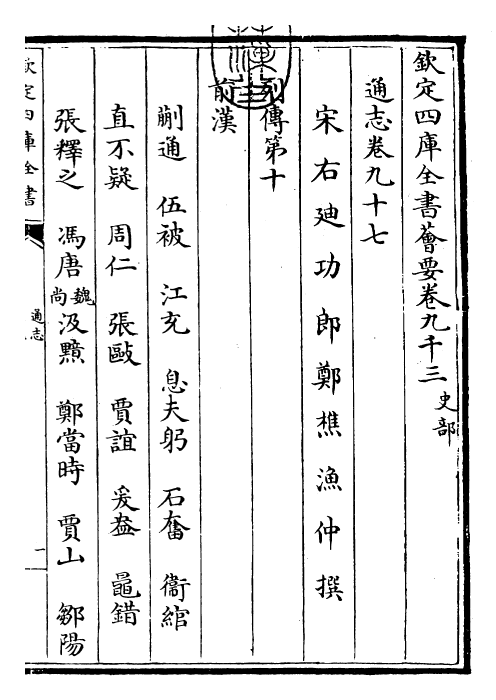 欽定四庫全書薈要卷九千三 史部
通志卷九十七
宋右廸功郎鄭樵漁仲撰
列傳第十
前漢
蒯通 伍被 江充 息夫躬 石奮 衛綰
直不疑 周仁 張歐 賈誼 爰盎 鼂錯
張釋之 馮唐 魏尚 汲黯 鄭當時 賈山 鄒陽
欽定四庫全書
通志
一